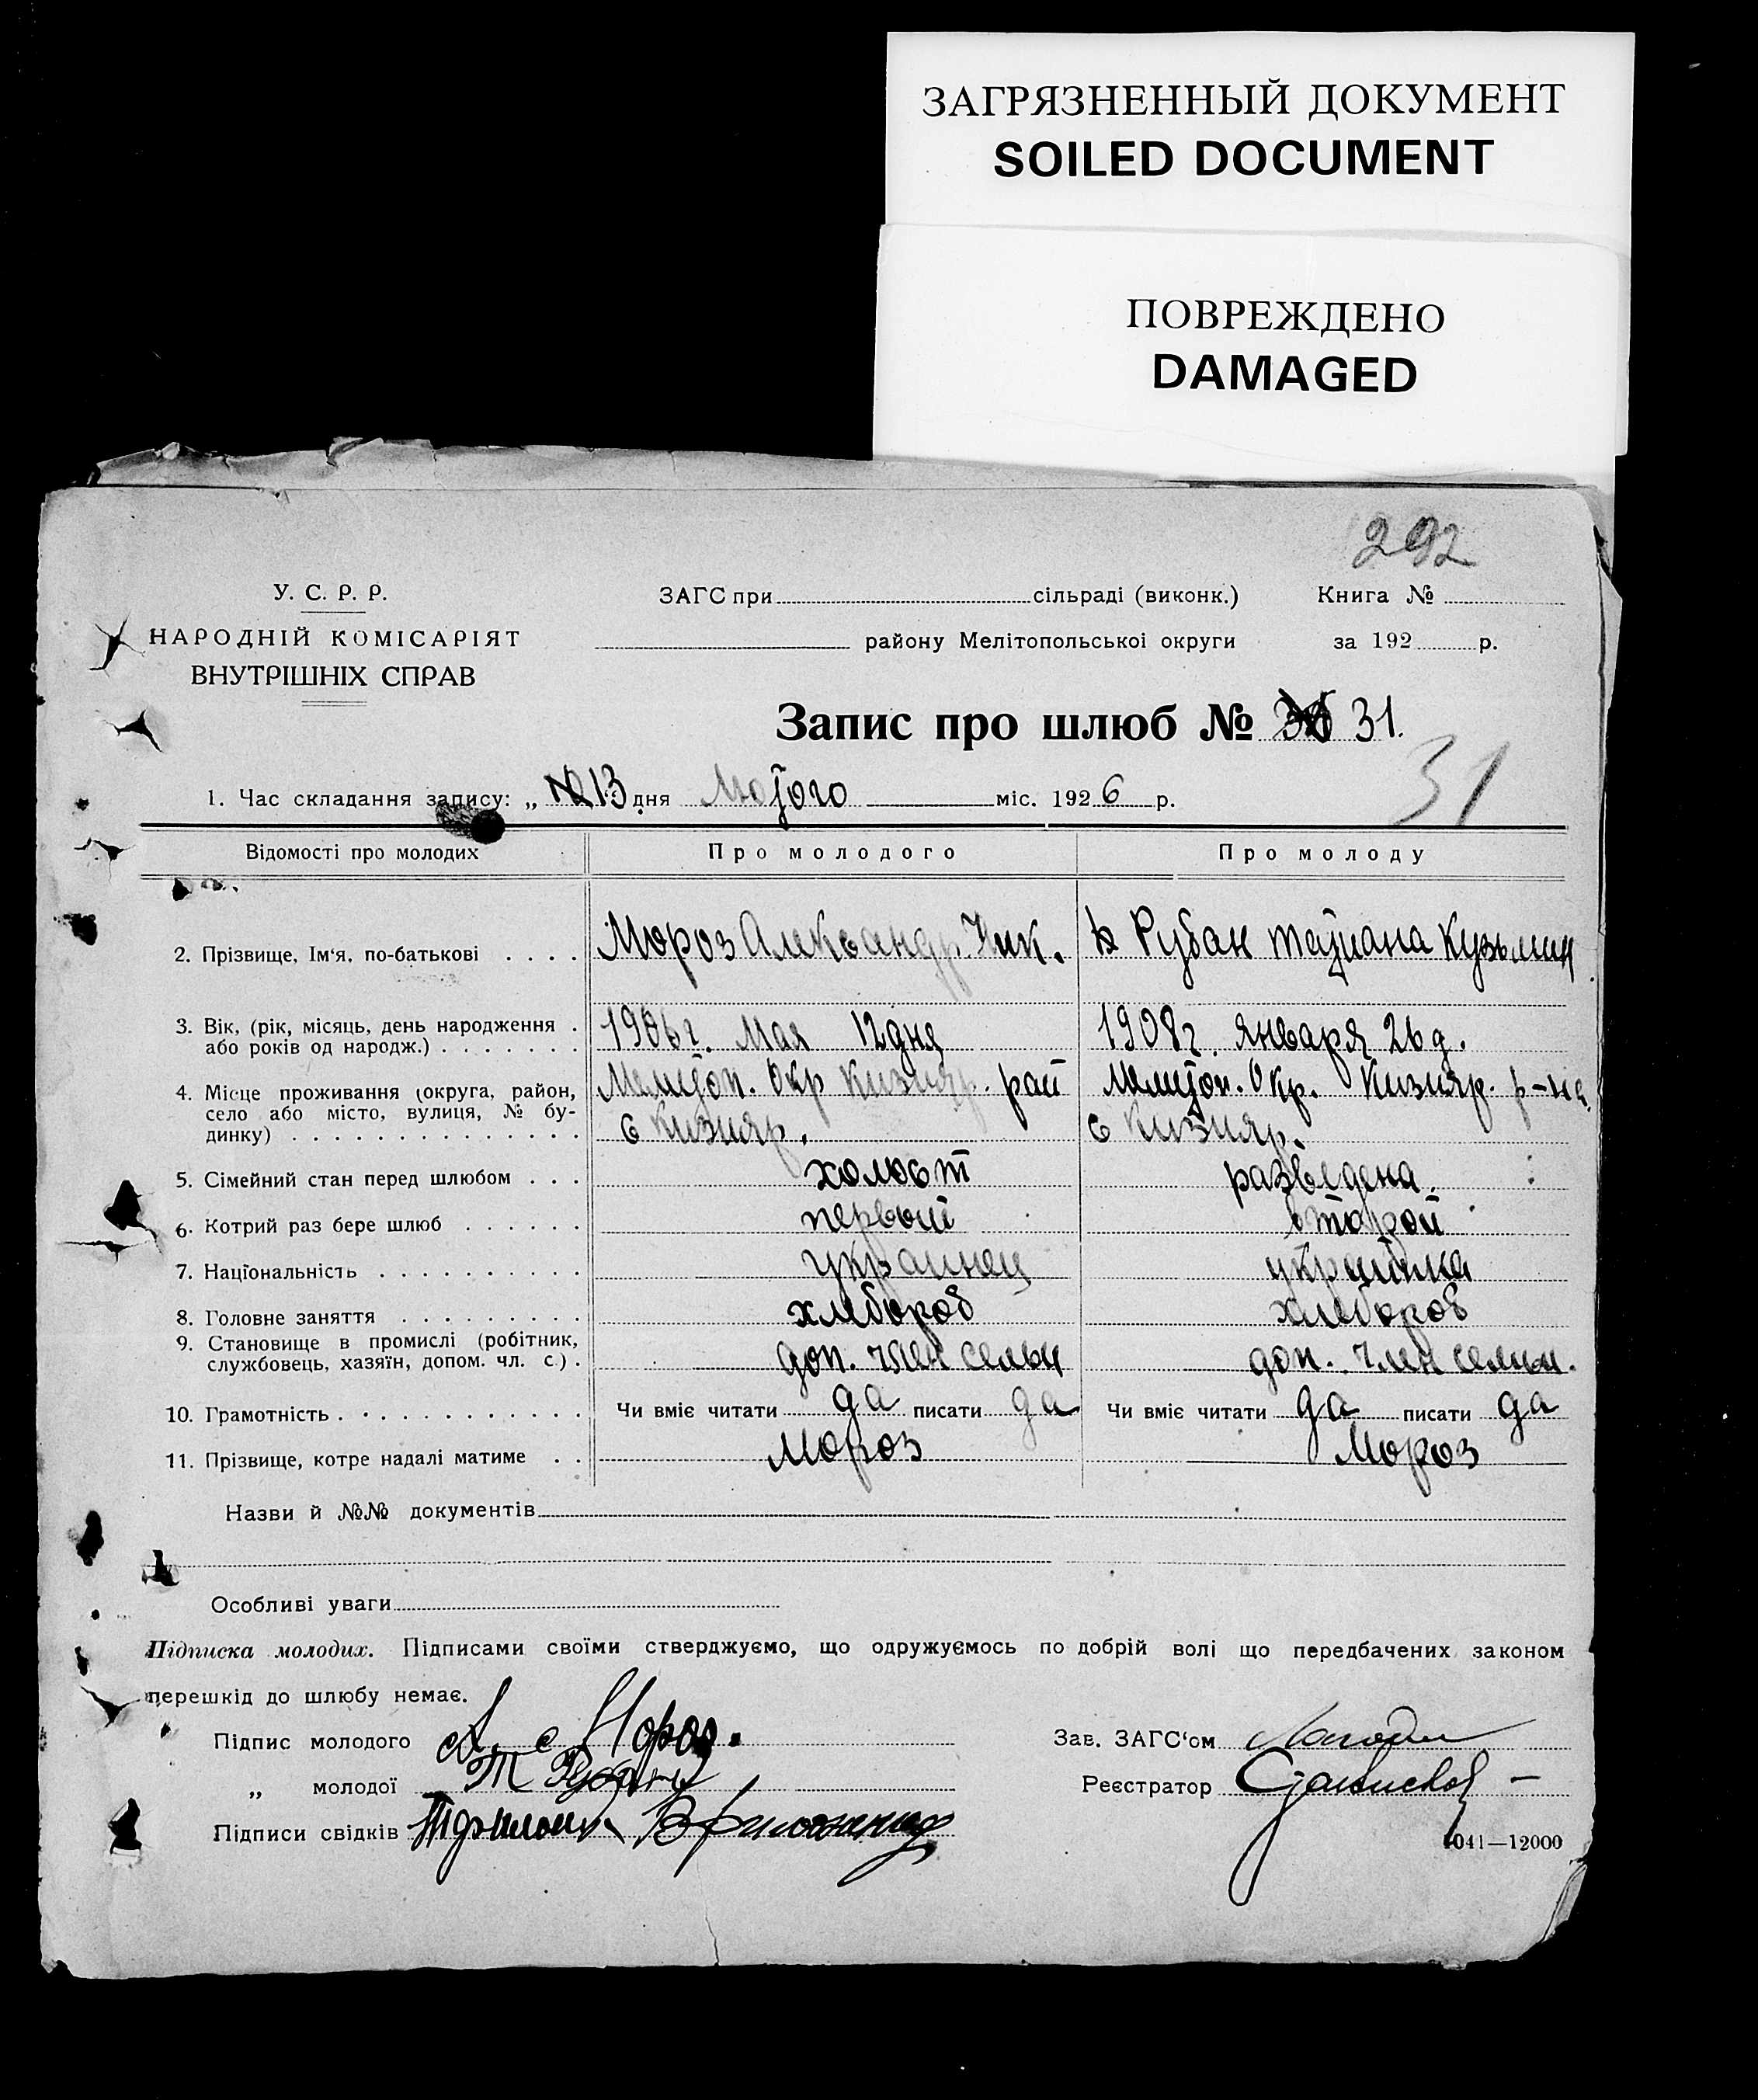 ЗАГРЯЗНЕННЫЙ ДОКУМЕНТ
SOILED DOCUMENT
ПОВРЕЖДЕНО
DAMAGED
292
У. С. Р. Р.
НАРОДНІЙ КОМІСАРІЯТ
ВНУТРІШНІХ СПРАВ
ЗАГС при сільраді (виконк.) Книга №
району Мелітопольської округи за 192 р.
Запис про шлюб № 31.
31
1. Час складання запису: „ 13 дня Лютого міс. 1926 р.
Відомості про молодих Про молодого Про молоду
2. Прізвище, Ім'я, по-батькові . . . . Мороз Александр Ник. Рубан Татиана Кузьмин
3. Вік, (рік, місяць, день народження . 1906 г. Мая 12 дня 1908 г. Января 26 д.
або років од народж.) . . . . . . .
4. Місце проживання (округа, район, Мелитоп. Окр Кизияр. рай Мелитоп. Окр. Кизияр. р-на
село або місто, вулиця, № бу-
динку) . . . . . . . . . . . . . . с Кизияр. с Кизияр.
5. Сімейний стан перед шлюбом . . . холост разведена.
6. Котрий раз бере шлюб . . . . . . первый второй
7. Національність . . . . . . . . . . украинец украинка
8. Головне заняття . . . . . . . . . хлебороб хлебороб
9. Становище в промислі (робітник,
службовець, хазяїн, допом. чл. с.) . доп. член семьи доп. член семьи.
10. Грамотність . . . . . . . . . . . . Чи вміє читати да писати да Чи вміє читати да писати да
11. Прізвище, котре надалі матиме . . Мороз Мороз
Назви й №№ документів
Особливі уваги
Підписка молодих. Підписами своїми стверджуємо, що одружуємось по добрій волі що передбачених законом
перешкід до шлюбу немає.
Підпис молодого А. Мороз. Зав. ЗАГС'ом
„ молодої Т Рубан Реєстратор
Підписи свідків
041—12000